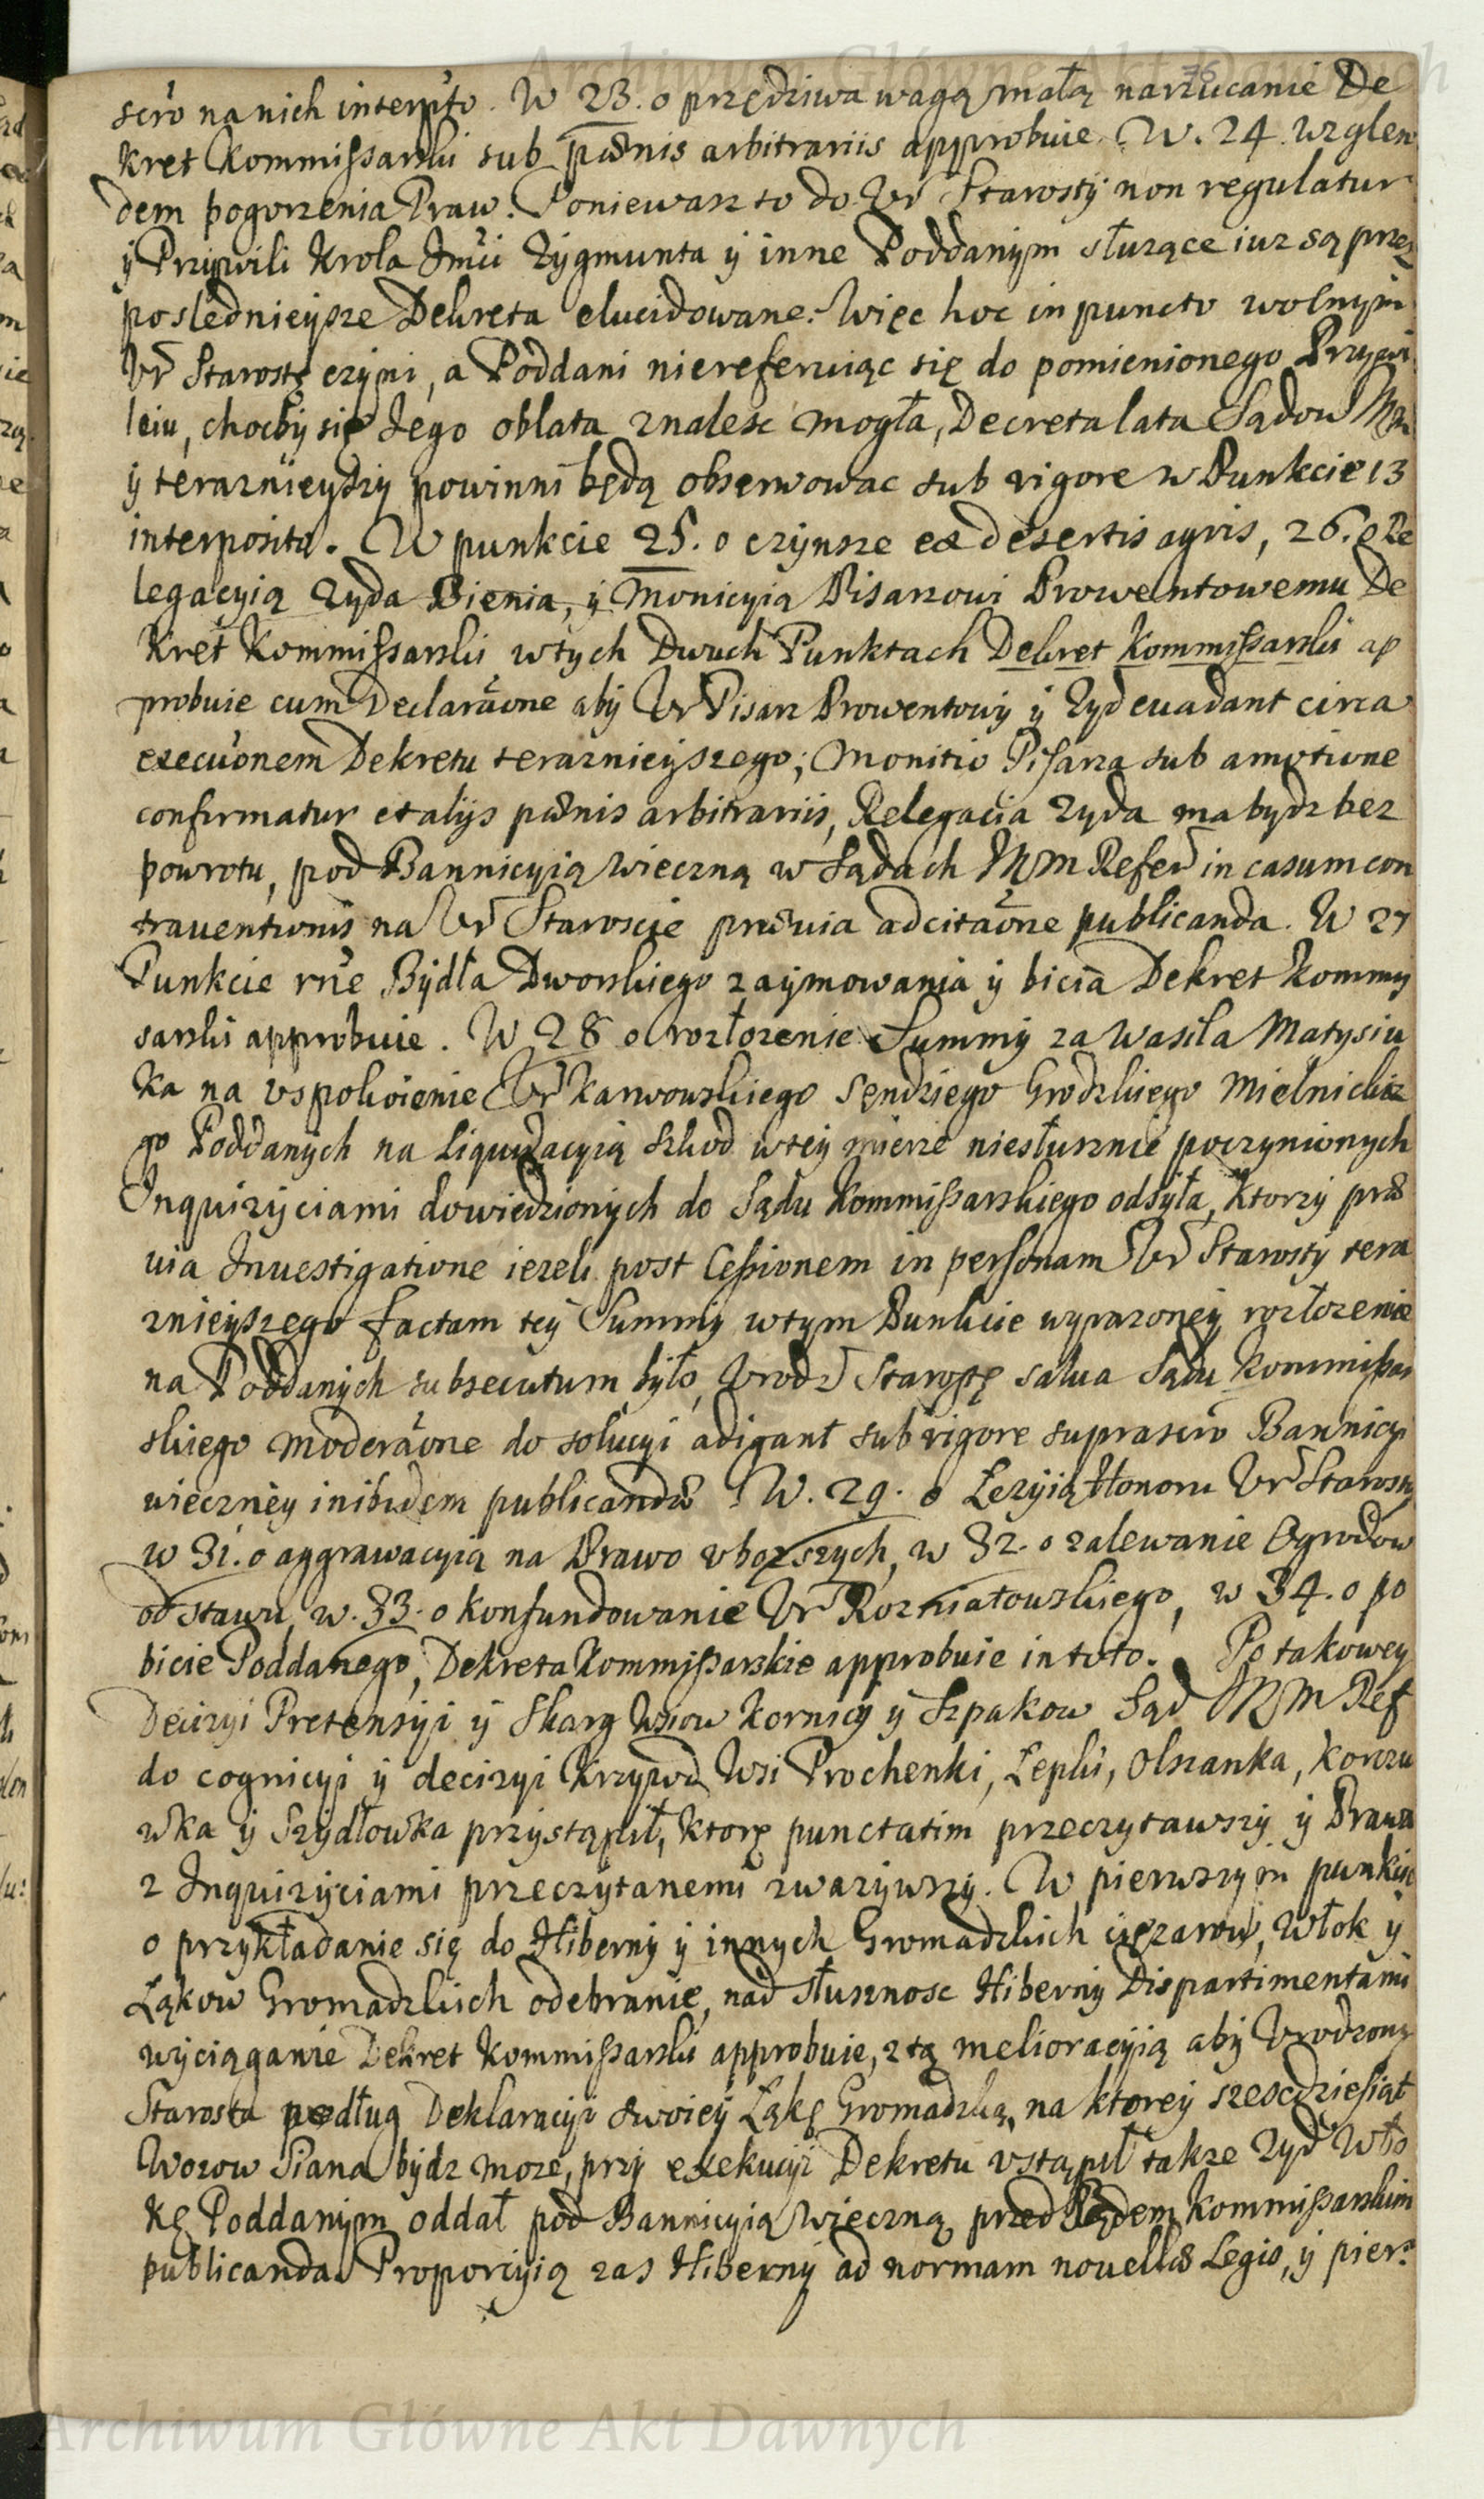 Archiwum Główne Akt Dawnych
76
scro na nich interpto. W 23. o przędziwa wagą małą narzucanie De
kret Kommissarski sub pœnis arbitrariis approbuie. W. 24. wzglen
dem pogorzenia Praw. Poniewasz to do Ur Starosty non regulatur
ÿ Przywili Krola Jmci Zygmunta ÿ inne Poddanym słuzące iuz są przez
poslednieysze Dekreta elucidowane. Więc hoc in puncto wolnym
Ur Starostę czyni, a Poddani niereferuiąc się do pomienionego Przywi
leiu, chocby się Jego oblata znalesc mogła, Decreta lata Sądow
ÿ teraznieyszy powinni będą obserwowac sub rigore w Punkcie 13
interposita. W punkcie 25. o czynsze ex desertis agris, 26. o Re
legacyią Zyda Bienia, ÿ Monicyią Pisarzowi Prowentowemu De
kret Kommissarski w tych Dwuch Punktach Dekret Kommissarski ap
probuie cum Declaraone aby Ur Pisarz Prowentowy ÿ Zyd euadant circa
execuonem Dekretu teraznieyszego; Monitio Pisarza sub amotione
confirmatur et alijs pœnis arbitrariis, Relegacia Zyda ma bydz bez
powrotu, pod Bannicyią wieczną w Sądach Refer in casum con
trauentionis na Ur Staroscie præuia adcitaone publicanda. W 27
Punkcie rne Bydła Dworskiego zaymowania ÿ bicia Dekret Kommis
sarski approbuie. W 28 o rozłozenie Summy za Wasila Matysiu
ka na uspokoienie Ur Karwowskiego Sendziego Grodzkiego Mielnickie
go Poddanych na Liquidacyią szkod w tey mierze niesłusznie poczynionych
Inquizyciami dowiedzionych do Sądu Kommissarskiego odsyła, ktorzy præ
uia Inuestigatione iezeli post Cessionem in personam Ur Starosty tera
znieyszego factam tey Summy w tym Punkcie wyrazoney rozłozenie
na Poddanych subsecutum było, Urodz Starostę salua Sądu Kommissar
skiego moderaone do solucyi adigant sub rigore suprascro Bannicyi
wieczney inibidem publicandæ. W. 29. o Lezyią Honoru Ur Starosty
w 31. o aggrawacyią na Prawo ubozszych, w 32. o zalewanie Ogrodow
od stawu, w. 33. o konfundowanie Ur Rozniatowskiego, w 34. o po
bicie Poddanego, Dekreta Kommissarskie approbuie in toto. Po takowey
Decizyi Pretensyi ÿ Skarg Wsiow Kornicy ÿ Szpakow Sąd Ref
do cognicyi ÿ decizyi Krzywd Wsi Prochenki, Lepki, Olszanka, Korczu
wka ÿ Szydłowka przystąpił, ktore punctatim przeczytawszy ÿ Prawa
z Inquizyciami przeczytanemi zwazywszy. W pierwszym punkcie
o przykładanie się do Hiberny ÿ innych Gromadzkich cięzarow, włok ÿ
Łąkow Gromadzkich odebranie, nad słusznosc Hiberny Dispartimentami
wyciąganie Dekret Kommissarski approbuie, z tą melioracyią aby Urodzony
Starosta podług Deklaracyi swoiey Łąkę Gromadzką, na ktorey szescdziesiąt
Wozow Siana bydz moze, przy exekucyi Dekretu ustąpił takze Zyd wło
kę Poddanym oddał pod Bannicyią wieczną przed Sądem Kommissarskim
publicanda. Proporcyią zas Hiberny ad normam nouellæ Legis, ÿ pier:
Archiwum Główne Akt Dawnych